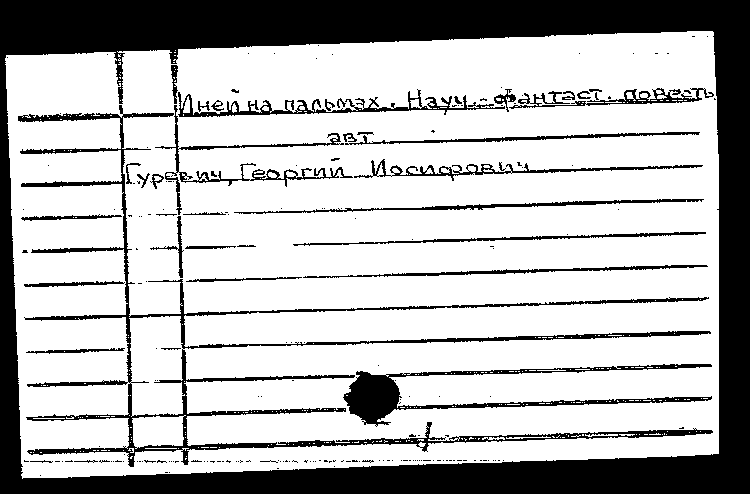 Иней на пальмах. Науч.-фантаст. повесть
авт.
Гуревич, Георгий Иосифович